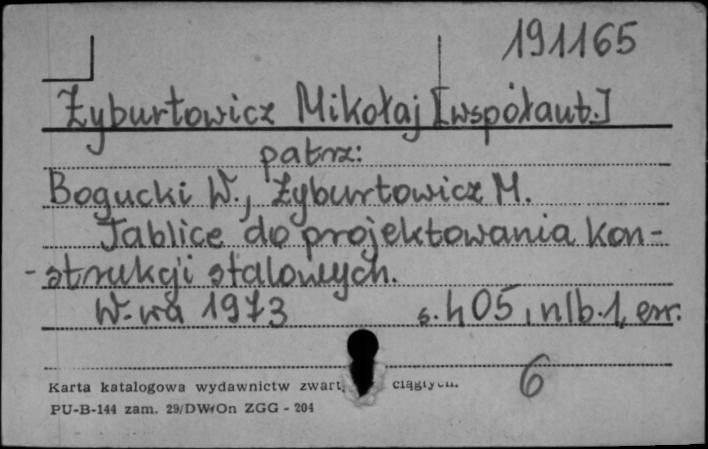 191165
Żyburtowicz Mikołaj [współaut.]
patrz:
Bogucki W., Żyburtowicz M.
Tablice do projektowania kon-
-strukcji stalowych.
W-wa 1973 s. 405, nlb. 1, err.
6
Karta katalogowa wydawnictw zwart. ciągłych.
PU-B-144 zam. 29/DW/On ZGG - 204